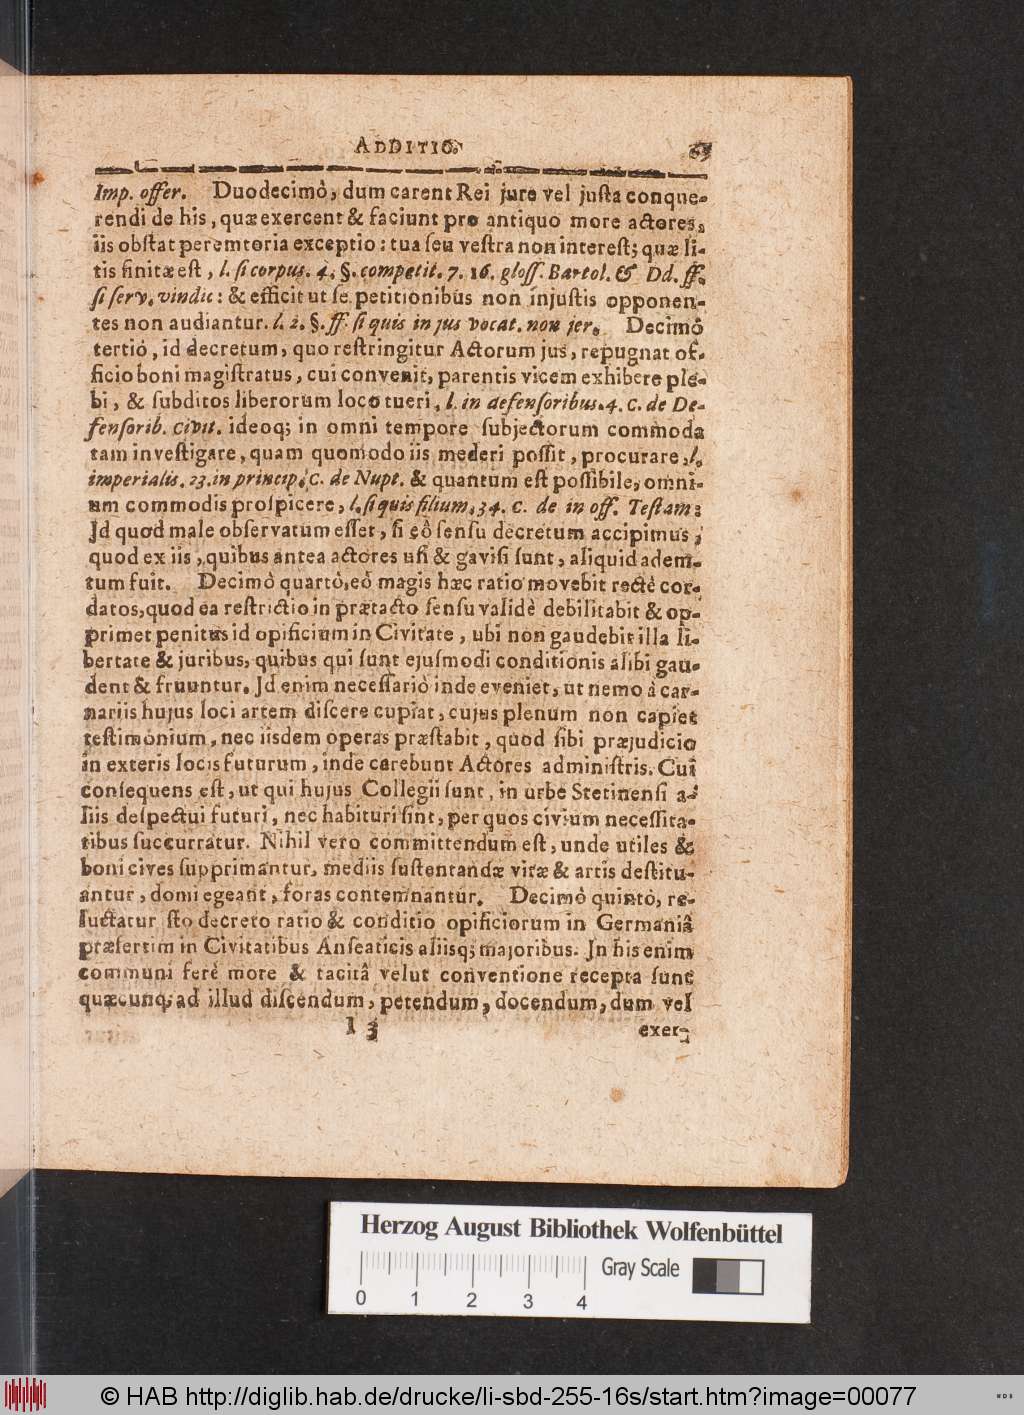 ADDITIO.
Imp. offer. Duodecimò, dum carent Rei jure vel justa conque-
rendi de his, quæ exercent & faciunt pro antiquo more actores,
iis obstat peremtoria exceptio: tua seu vestra non interest; quæ li-
tis finitæ est, l. si corpus. 4. §. competit. 7. 16. gloss. Bartol. & Dd. ff.
si serv. vindic: & efficit ut se petitionibus non injustis opponen-
tes non audiantur. l. 2. §. ff. si quis in jus vocat. non jer. Decimô
tertiô, id decretum, quo restringitur Actorum jus, repugnat of-
ficio boni magistratus, cui convenit, parentis vicem exhibere ple-
bi, & subditos liberorum loco tueri, l. in defensoribus. 4. C. de De-
fensorib. Civit. ideoq; in omni tempore subjectorum commoda
tam investigare, quam quomodo iis mederi possit, procurare, l.
imperialis. 23. in princip. C. de Nupt. & quantum est possibile, omni-
um commodis prospicere, l. si quis filium. 34. C. de in off. Testam:
Jd quod male observatum esset, si eô sensu decretum accipimus,
quod ex iis, quibus antea actores usi & gavisi sunt, aliquid adem-
tum fuit. Decimò quartò, eô magis hæc ratio movebit rectè cor-
datos, quod ea restrictio in prætacto sensu validè debilitabit & op-
primet penitus id opificium in Civitate, ubi non gaudebit illa li-
bertate & juribus, quibus qui sunt ejusmodi conditionis alibi gau-
dent & fruuntur. Jd enim necessariò inde eveniet, ut nemo à car-
nariis hujus loci artem discere cupiat, cujus plenum non capiet
testimonium, nec iisdem operas præstabit, quod sibi præjudicio
in exteris locis futurum, inde carebunt Actores administris. Cui
consequens est, ut qui hujus Collegii sunt, in urbe Stetinensi a-
liis despectui futuri, nec habituri sint, per quos civium necessita-
tibus succurratur. Nihil vero committendum est, unde utiles &
boni cives supprimantur, mediis sustentandæ vitæ & artis destitu-
antur, domi egeant, foras contemnantur. Decimò quintò, re-
luctatur sto decreto ratio & conditio opificiorum in Germaniâ
præsertim in Civitatibus Anseaticis aliisq; majoribus. Jn his enim
communi ferè more & tacitâ velut conventione recepta sunt
quæcunq; ad illud discendum, petendum, docendum, dum vel
I 3
exer-
Herzog August Bibliothek Wolfenbüttel
Gray Scale
0 1 2 3 4
© HAB http://diglib.hab.de/drucke/li-sbd-255-16s/start.htm?image=00077